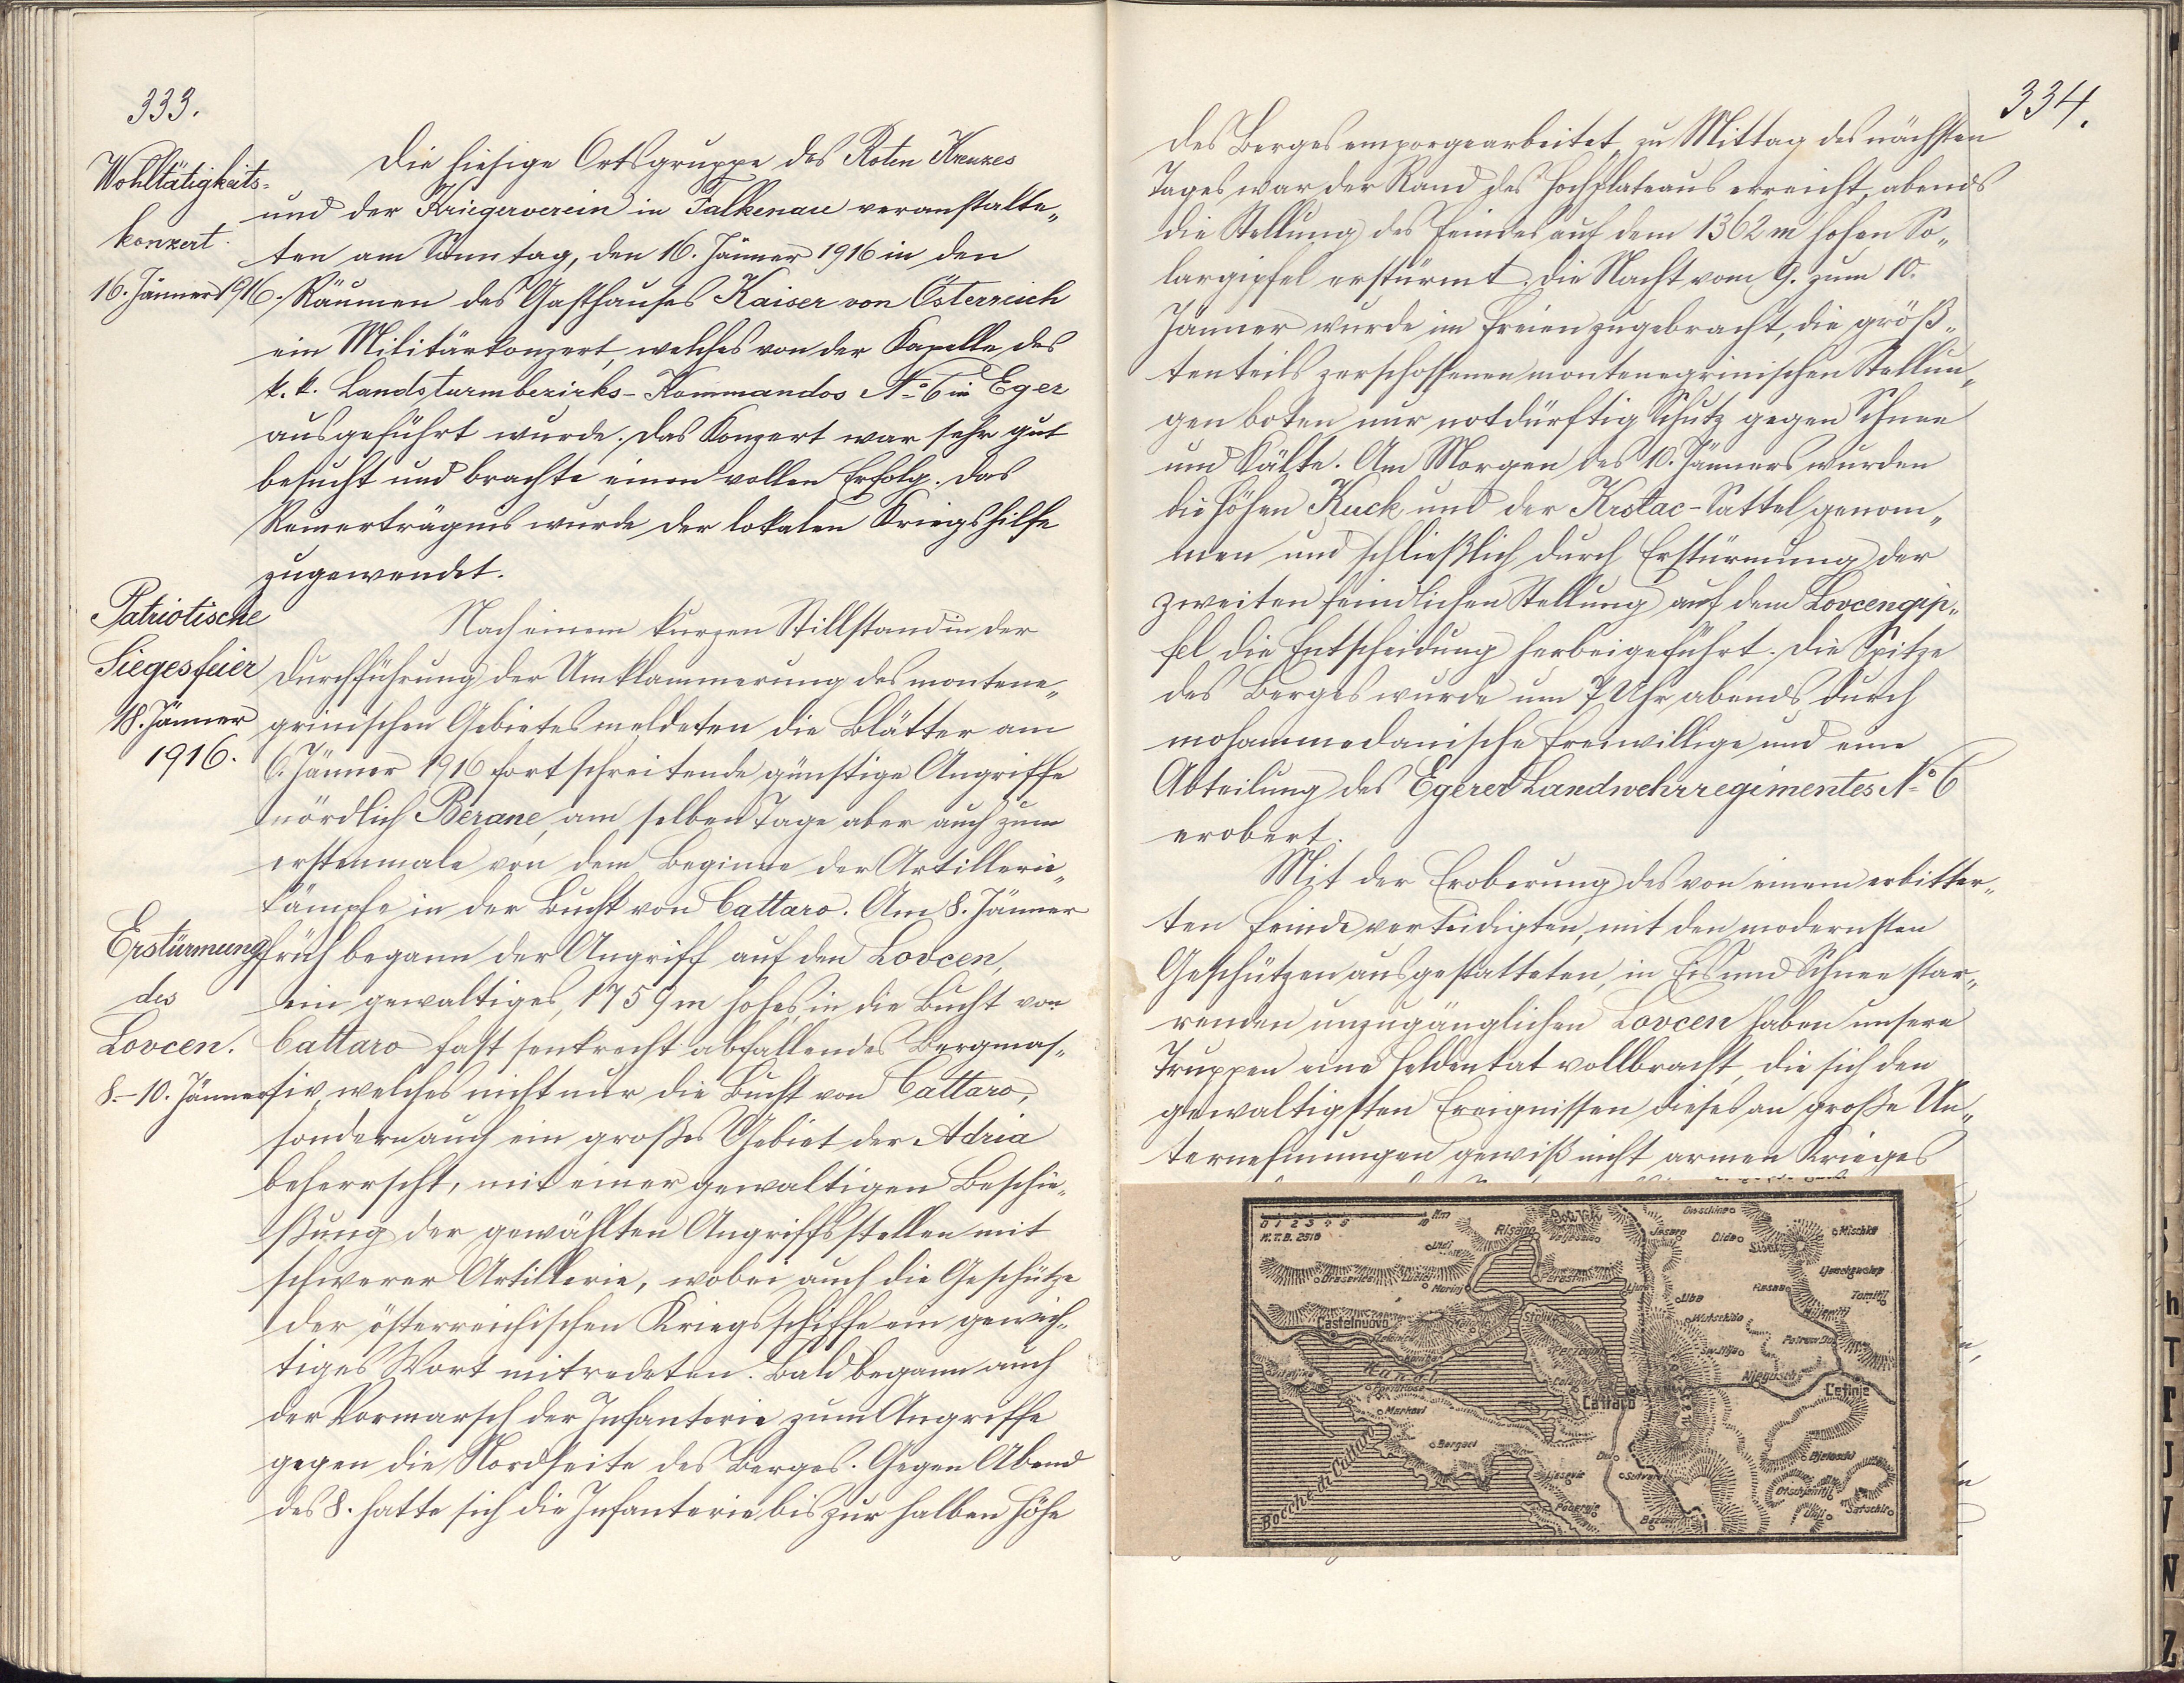 333.
Wohltätigkeits-
konzert.
16. Jänner 1916.
Die hiesige Ortsgruppe des Roten Kreuzes
und der Kriegerverein in Falkenau veranstalte-
ten am Sonntag, den 16. Jänner 1916 in den
Räumen des Gasthauses Kaiser von Österreich
ein Militärkonzert, welches von der Kapelle des
k. k. Landsturmbezirks-Kommandos No 6 in Eger
ausgeführt wurde. Das Konzert war sehr gut
besucht und brachte einen vollen Erfolg. Das
Reinerträgnis wurde der lokalen Kriegshilfe
zugewendet.
Patriotische
Siegesfeier
18. Jänner
1916.
Nach einem kurzen Stillstand in der
Durchführung der Umklammerung des montene-
grinischen Gebietes meldeten die Blätter am
6. Jänner 1916 fortschreitende günstige Angriffe
nördlich Berane, am selben Tage aber auch zum
erstenmale von dem Beginne der Artillerie-
kämpfe in der Bucht von Cattaro. Am 8. Jänner
Erstürmung
des
Lovcen.
8.-10. Jänner
früh begann der Angriff auf den Lovcen,
ein gewaltiges, 1759 m hohes, in die Bucht von
Cattaro fast senkrecht abfallendes Bergmas-
siv, welches nicht nur die Bucht von Cattaro,
sondern auch ein großes Gebiet der Adria
beherrscht, mit einer gewaltigen Beschie-
ßung der gewählten Angriffsstellen mit
schwerer Artillerie, wobei auch die Geschütze
der österreichischen Kriegsschiffe ein gewich-
tiges Wort mitredeten. Bald begann auch
der Vormarsch der Infanterie zum Angriffe
gegen die Nordseite des Berges. Gegen Abend
des 8. hatte sich die Infanterie bis zur halben Höhe
334.
des Berges emporgearbeitet, zu Mittag des nächsten
Tages war der Rand des Hochplateaus erreicht, abends
die Stellung des Feindes auf dem 1362 m hohen So-
largipfel erstürmt. Die Nacht vom 9. zum 10.
Jänner wurde im Freien zugebracht, die größ-
tenteils zerschossenen montenegrinischen Stellun-
gen boten nur notdürftig Schutz gegen Schnee
und Kälte. Am Morgen des 10. Jänners wurden
die Höhen Kuck und der Krstac-Sattel genom-
men und schließlich durch Erstürmung der
zweiten feindlichen Stellung auf dem Lovcengip-
fel die Entscheidung herbeigeführt. Die Spitze
des Berges wurde um 7 Uhr abends durch
mohammedanische Freiwillige und eine
Abteilung des Egerer Landwehrregimentes No 6
erobert.
Mit der Eroberung des von einem erbitter-
ten Feinde verteidigten, mit den modernsten
Geschützen ausgestatteten, in Eis und Schnee star-
renden unzugänglichen Lovcen haben unsere
Truppen eine Heldentat vollbracht, die sich den
gewaltigsten Ereignissen dieses an große Un-
ternehmungen gewiß nicht armen Krieges
0 1 2 3 4 5 10 Km
K.T.B. 2510
Risano
Castelnuovo
Kanal
Cattaro
Njegusch
Cetinje
Bocche di Cattaro